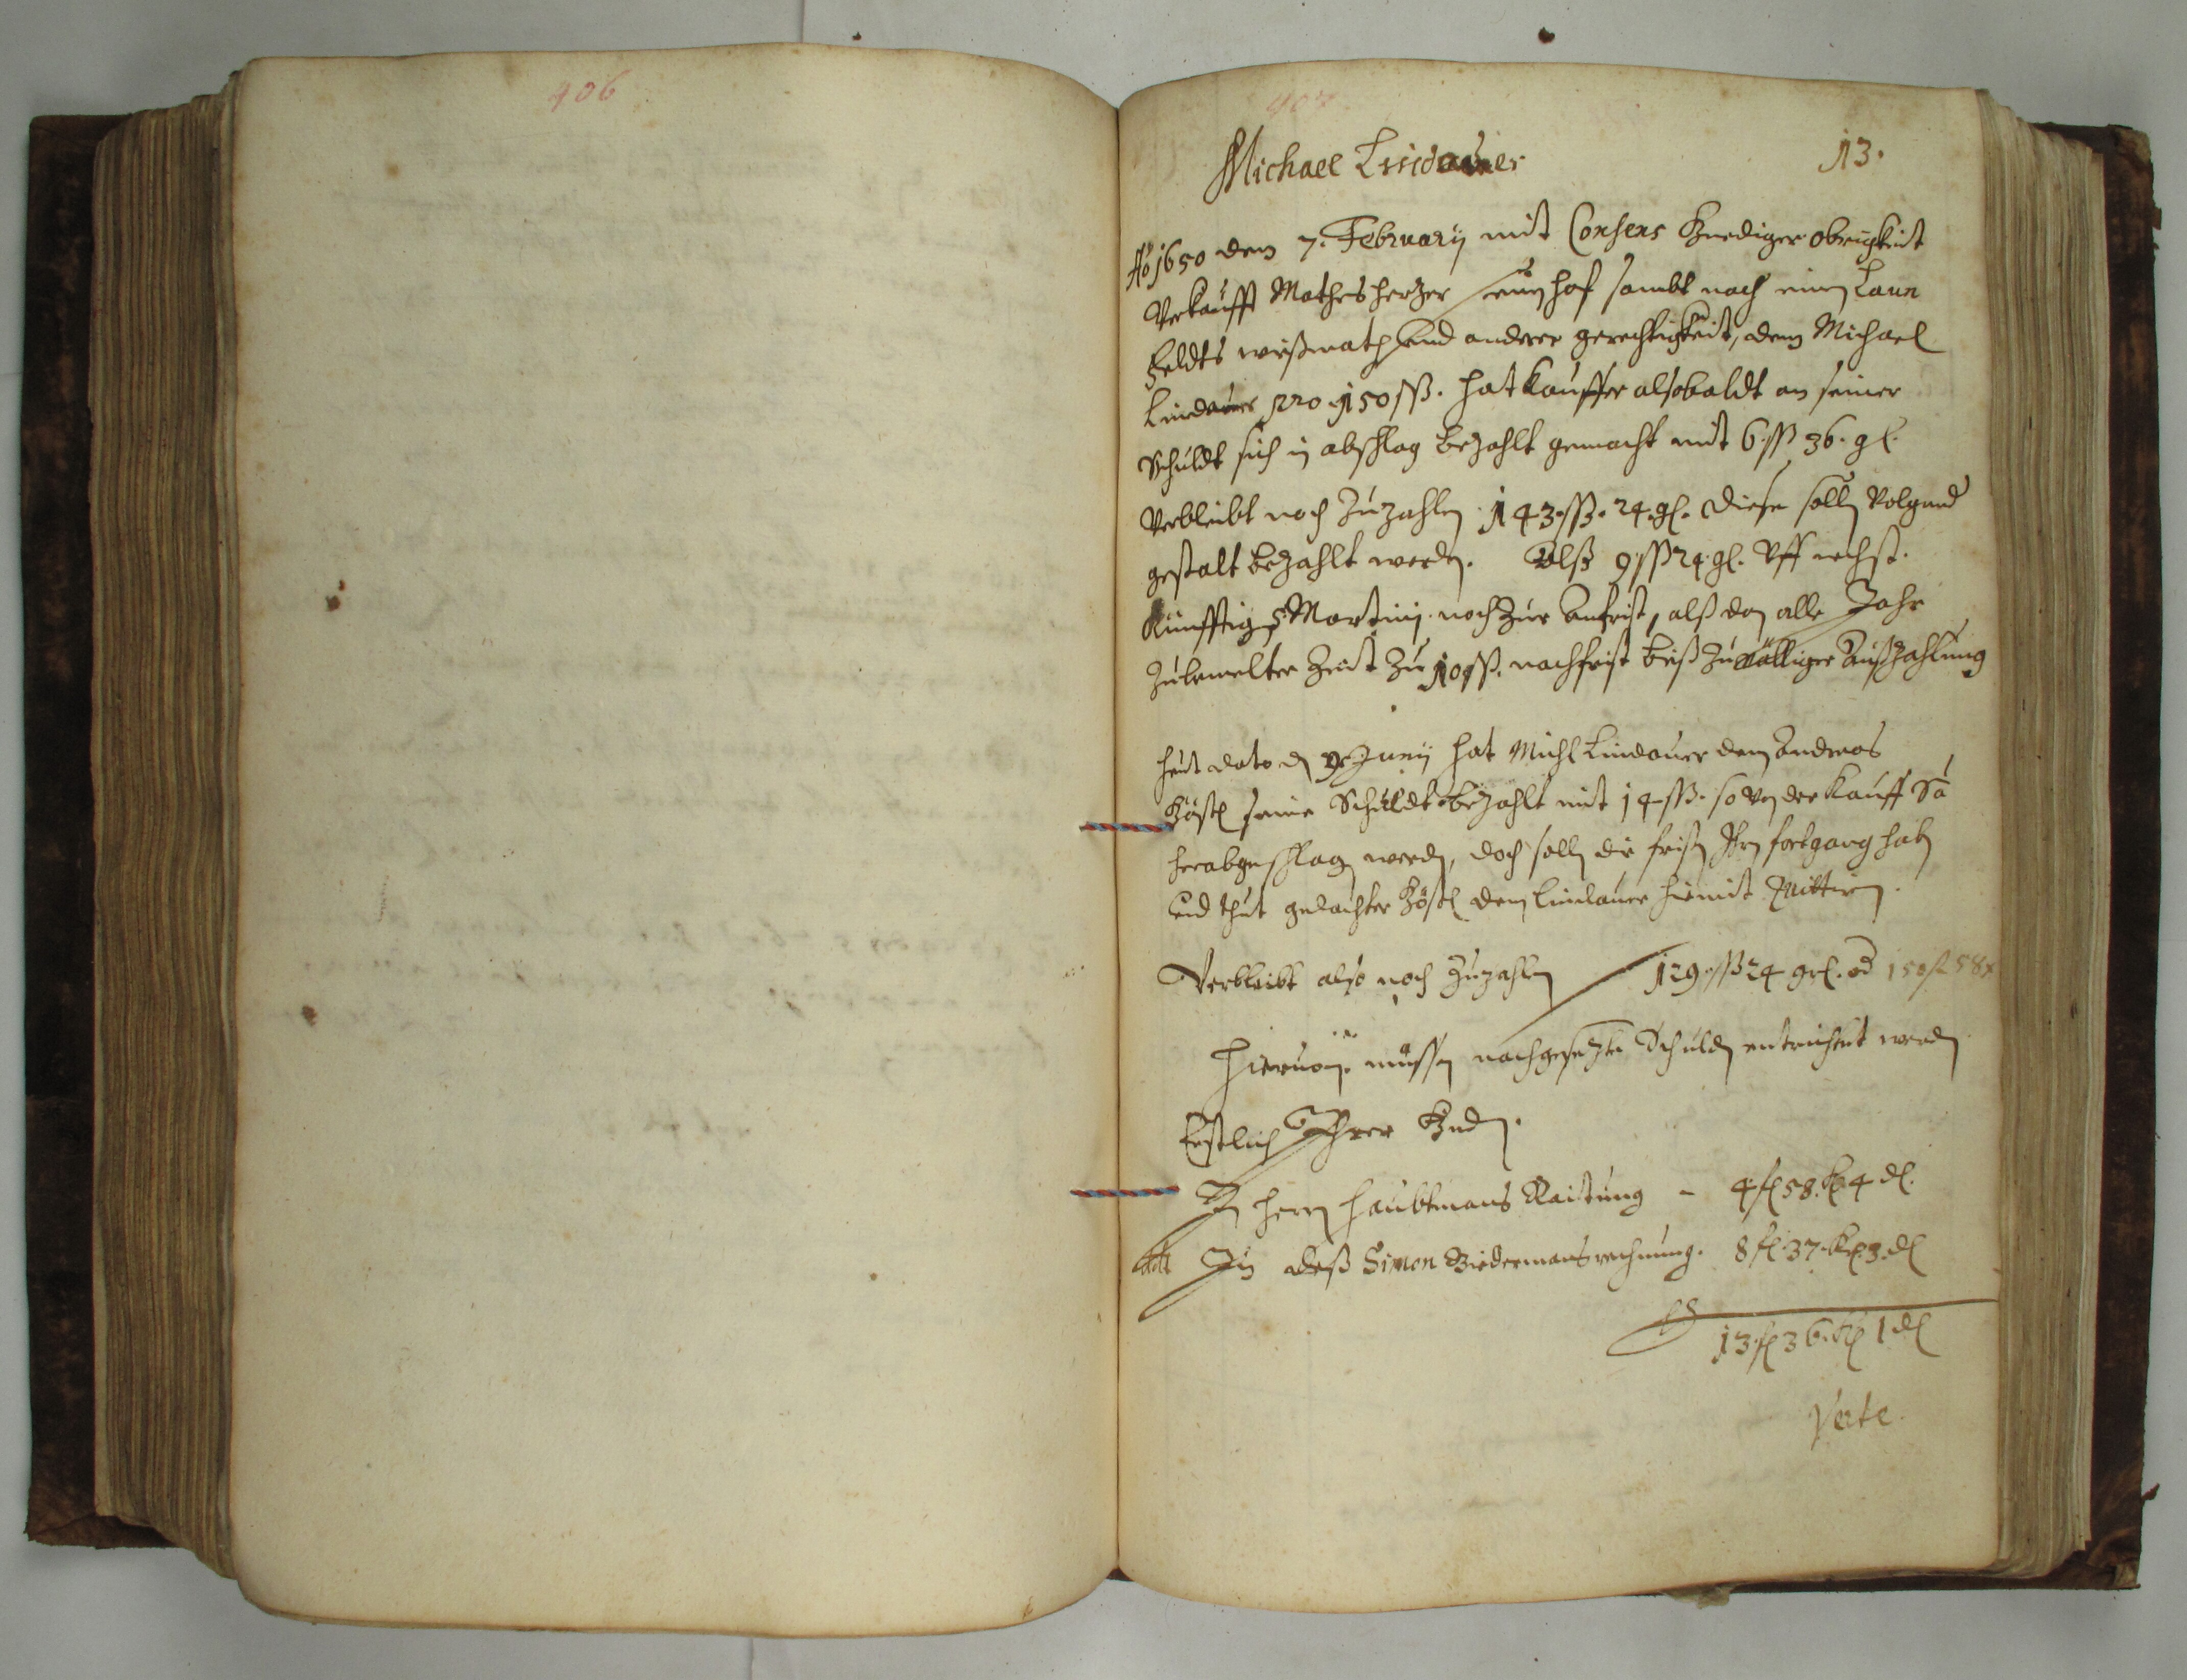 406
407
Michael Lindauer
13.
Ao 1650 dem 7. February mit Consens Gnediger Obrigkeit
Verkaufft Mathes Herzer einen hof sambt noch einen Laun
feldts wißmath und anderer gerechtigkeit, dem Michael
Lindauer pro 150 ßß. hat kauffer alsobaldt an seiner
Schuldt sich in abschlag bezahlt gemacht mit 6 ßß 36. gl.
Verbleibt noch zuzahlen 143 ßß. 24. gl. diese sollen volgend
gestalt bezahlt werden. Alß 9 ßß 24 gl. uff nechst.
künfftig S. Martiny noch zur anfrist, alß dan alle Jahr
zubemelter Zeit zu 10 ßß. nachfrist biß zu völliger außzahlung
heut dato den Juny hat Michl Lindauer dem Andreas
seine Schuldt bezahlt mit 14 ßß. so von der kauff Sa
herabgeschlagen werden, doch sollen die fristen Ihren fortgang haben
und thut gedachter dem Lindauer hiemit quittiren.
Verbleibt also noch zuzahlen 129 ßß 24 grl. od 150 fl 58 x
Hieruon müssen nachgesetzte Schulden entrichtet werden
Erstlich Ihrer Gnden.
In herrn haubtmans Raittung - 4 fl 58. kr. 4 dl.
In deß Simon Biedermans rechnung. 8 fl. 37. kr. 3. dl
13 fl 36. kr 1 dl
Verte.